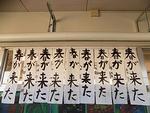 春が来た
春が来た
春が来た
春が来た
春が来た
春が来た
春が来た
春が来た
春が来た